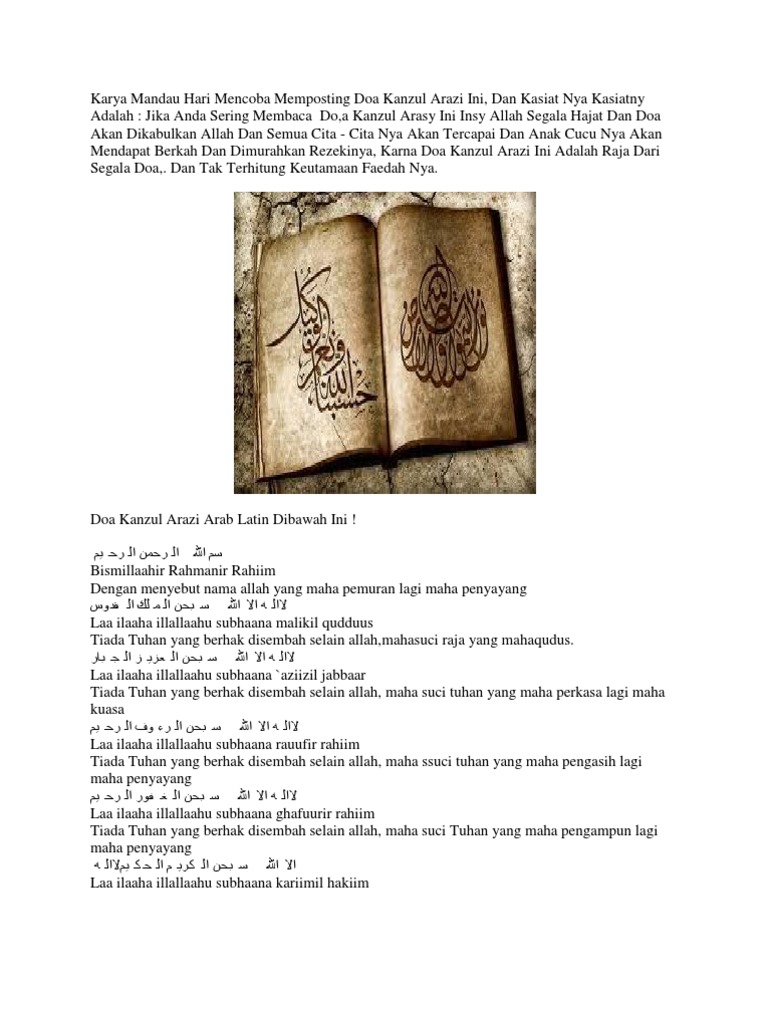 Karya Mandau Hari Mencoba Memposting Doa Kanzul Arazi Ini, Dan Kasiat Nya Kasiatny
Adalah : Jika Anda Sering Membaca  Do,a Kanzul Arasy Ini Insy Allah Segala Hajat Dan Doa
Akan Dikabulkan Allah Dan Semua Cita - Cita Nya Akan Tercapai Dan Anak Cucu Nya Akan
Mendapat Berkah Dan Dimurahkan Rezekinya, Karna Doa Kanzul Arazi Ini Adalah Raja Dari
Segala Doa,. Dan Tak Terhitung Keutamaan Faedah Nya.
حسبنا الله ونعم الوكيل
الله نور السموات والأرض
Doa Kanzul Arazi Arab Latin Dibawah Ini !
سم الله الرحمن الرحيم
Bismillaahir Rahmanir Rahiim
Dengan menyebut nama allah yang maha pemuran lagi maha penyayang
لااله الا الله سبحن الملك القدوس
Laa ilaaha illallaahu subhaana malikil qudduus
Tiada Tuhan yang berhak disembah selain allah,mahasuci raja yang mahaqudus.
لااله الا الله سبحن العزيز الجبار
Laa ilaaha illallaahu subhaana `aziizil jabbaar
Tiada Tuhan yang berhak disembah selain allah, maha suci tuhan yang maha perkasa lagi maha
kuasa
لااله الا الله سبحن الرءوف الرحيم
Laa ilaaha illallaahu subhaana rauufir rahiim
Tiada Tuhan yang berhak disembah selain allah, maha ssuci tuhan yang maha pengasih lagi
maha penyayang
لااله الا الله سبحن الغفور الرحيم
Laa ilaaha illallaahu subhaana ghafuurir rahiim
Tiada Tuhan yang berhak disembah selain allah, maha suci Tuhan yang maha pengampun lagi
maha penyayang
الا الله سبحن الكريم الحكيملااله
Laa ilaaha illallaahu subhaana kariimil hakiim